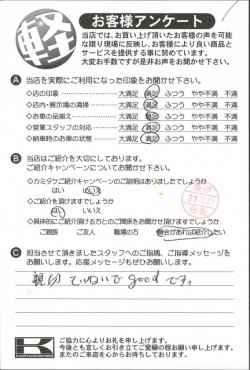 軽
お客様アンケート
当店では、お買い上げ頂いたお客様の声を可能
な限り現場に反映し、お客様により良い商品と
サービスを提供する事に努めています。
大変お手数ですが是非お声をお聞かせ下さい。
A 当店を実際にご利用になった印象をお聞かせ下さい。
◇店の印象 大満足 満足 ふつう やや不満 不満
◇店内・展示場の清掃 大満足 満足 ふつう やや不満 不満
◇お車の品揃え 大満足 満足 ふつう やや不満 不満
◇営業スタッフの対応 大満足 満足 ふつう やや不満 不満
◇納車時のお車の状態 大満足 満足 ふつう やや不満 不満
B 当店はご紹介を大切にしております。
ご紹介キャンペーンについてお聞かせ下さい。
◇カミタケご紹介キャンペーンのご説明はありましたでしょうか
はい いいえ
◇ご紹介を頂けますでしょうか
はい いいえ
◇具体的にご紹介頂ける方とのご関係をお聞かせ頂けますでしょうか
ご親族 ご友人 職場の方 機会があれば紹介したい
C 担当させて頂きましたスタッフへのご指摘、ご指導メッセージを
お願いします。応援メッセージもぜひお願いします。
親切 ていねいで goodです。
K
ご協力に心よりお礼を申し上げます。
今後とも宜しくお引き立てご愛顧の程お願い申し上げます。
またのご来店を心からお待ちしております。